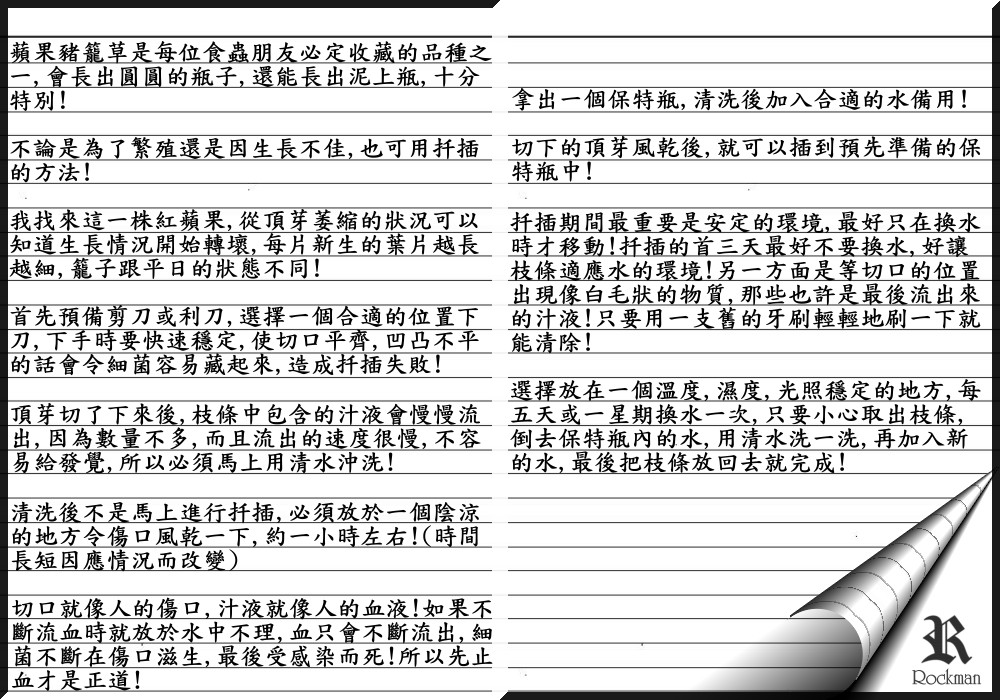 蘋果豬籠草是每位食蟲朋友必定收藏的品種之
一,會長出圓圓的瓶子,還能長出泥上瓶,十分
特別!
不論是為了繁殖還是因生長不佳,也可用扦插
的方法!
我找來這一株紅蘋果,從頂芽萎縮的狀況可以
知道生長情況開始轉壞,每片新生的葉片越長
越細,籠子跟平日的狀態不同!
首先預備剪刀或利刀,選擇一個合適的位置下
刀,下手時要快速穩定,使切口平齊,凹凸不平
的話會令細菌容易藏起來,造成扦插失敗!
頂芽切了下來後,枝條中包含的汁液會慢慢流
出,因為數量不多,而且流出的速度很慢,不容
易給發覺,所以必須馬上用清水沖洗!
清洗後不是馬上進行扦插,必須放於一個陰涼
的地方令傷口風乾一下,約一小時左右!(時間
長短因應情況而改變)
切口就像人的傷口,汁液就像人的血液!如果不
斷流血時就放於水中不理,血只會不斷流出,細
菌不斷在傷口滋生,最後受感染而死!所以先止
血才是正道!
拿出一個保特瓶,清洗後加入合適的水備用!
切下的頂芽風乾後,就可以插到預先準備的保
特瓶中!
扦插期間最重要是安定的環境,最好只在換水
時才移動!扦插的首三天最好不要換水,好讓
枝條適應水的環境!另一方面是等切口的位置
出現像白毛狀的物質,那些也許是最後流出來
的汁液!只要用一支舊的牙刷輕輕地刷一下就
能清除!
選擇放在一個溫度,濕度,光照穩定的地方,每
五天或一星期換水一次,只要小心取出枝條,
倒去保特瓶內的水,用清水洗一洗,再加入新
的水,最後把枝條放回去就完成!
R
Rockman